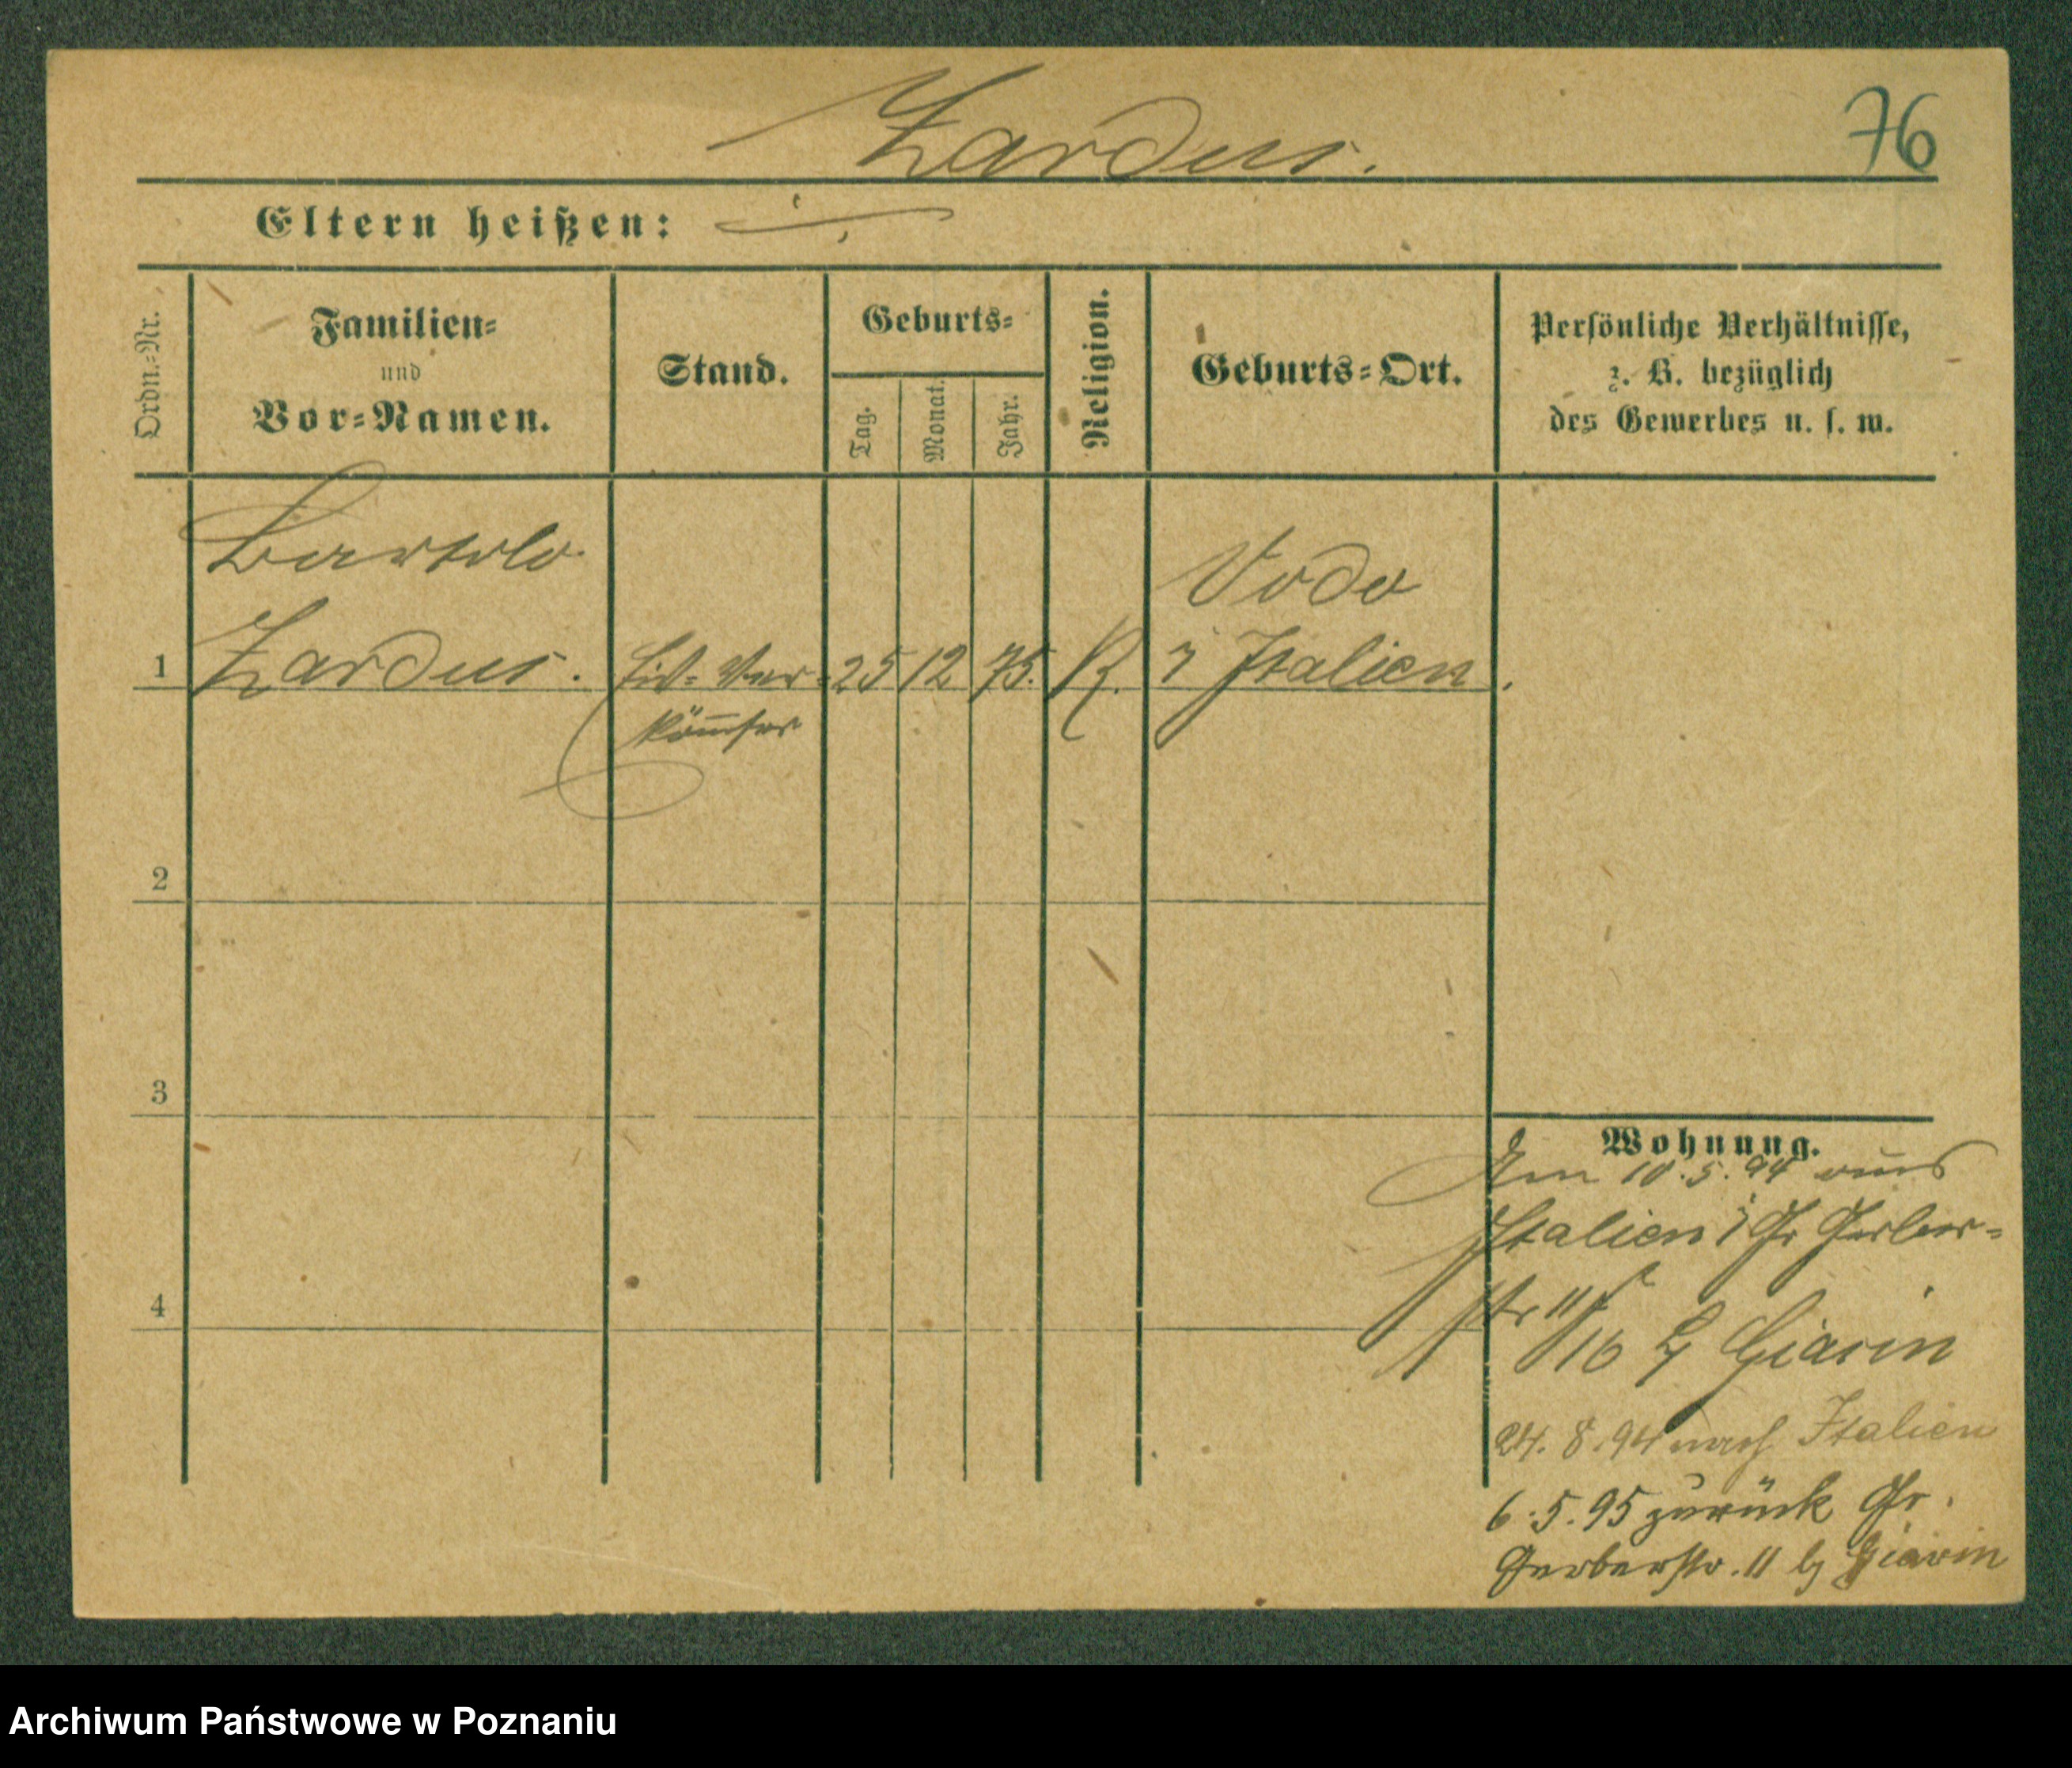 Zardus.
76
Eltern heißen:
Ordn.-Nr.
Familien-
und
Vor-Namen.
Stand.
Geburts-
Tag.
Monat.
Jahr.
Religion.
Geburts-Ort.
Persönliche Verhältnisse,
z. B. bezüglich
des Gewerbes u. s. w.
Bartolo
Vodo
1 Zardus. Eis- Ver- 25 12 75. K. i Italien.
2
3
4
Wohnung.
Am 10.5.94 aus
Italien i Gr Gerber-
str 11
16 b Giarin
24. 8. 94 nach Italien
6.5.95 zurück Gr.
Gerberstr. 11 b Giarin
Archiwum Państwowe w Poznaniu